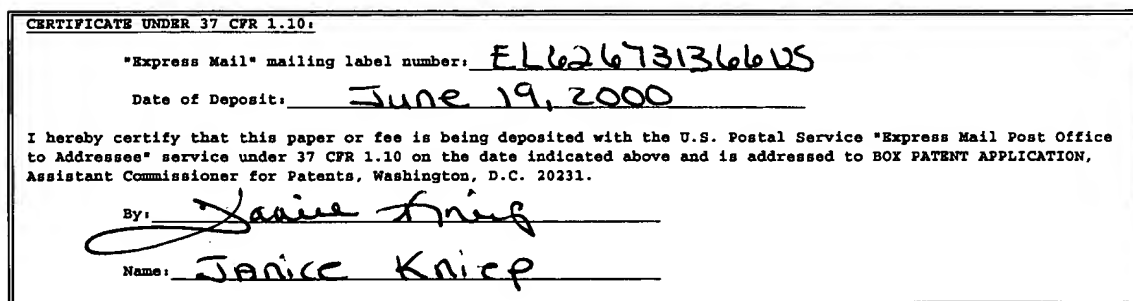 CERTIFICATE UNDER 37 CFR 1.10:
"Express Mail" mailing label number: EL626731366US
Date of Deposit: June 19, 2000
I hereby certify that this paper or fee is being deposited with the U.S. Postal Service "Express Mail Post Office
to Addressee" service under 37 CFR 1.10 on the date indicated above and is addressed to BOX PATENT APPLICATION,
Assistant Commissioner for Patents, Washington, D.C. 20231.
By: Janice Kniep
Name: Janice Kniep